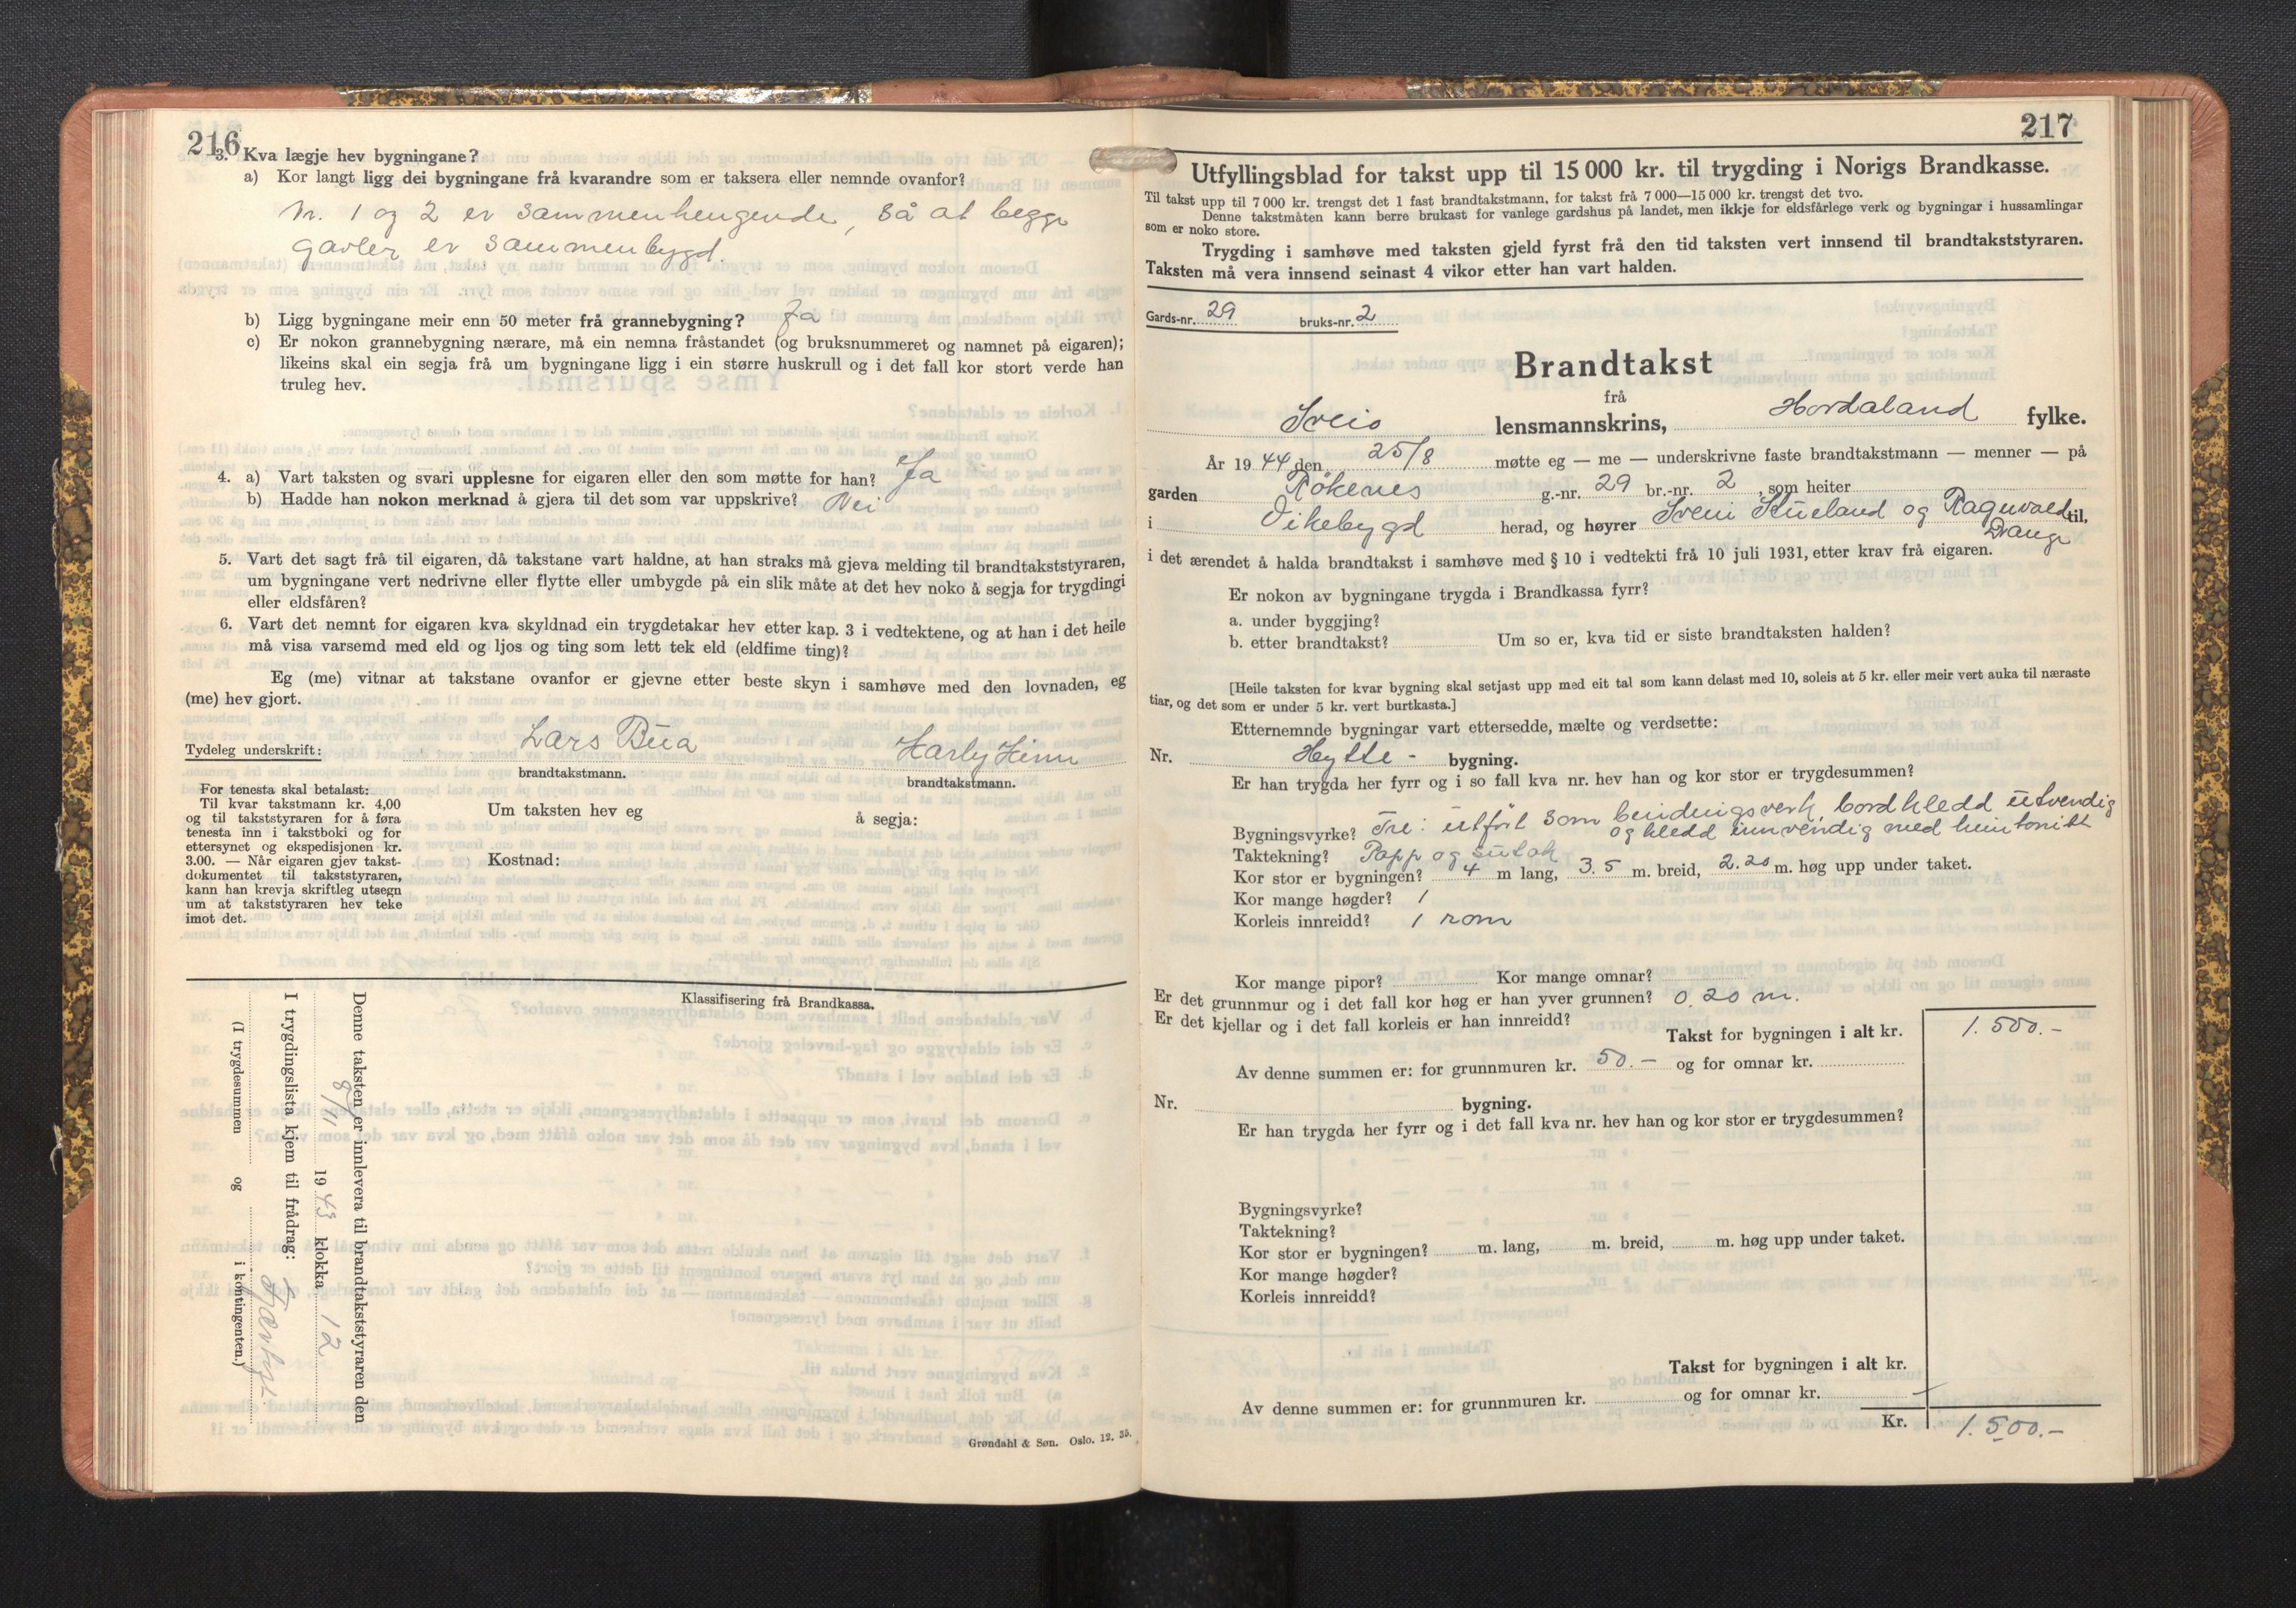 216
3. Kva lægje hev bygningane?
a) Kor langt ligg dei bygningane frå kvarandre som er taksera eller nemnde ovanfor?
Nr. 1 og 2 er sammenhengende, så at begge
gavler er sammenbygd.
b) Ligg bygningane meir enn 50 meter frå grannebygning? Ja
c) Er nokon grannebygning nærare, må ein nemna fråstandet (og bruksnummeret og namnet på eigaren);
likeins skal ein segja frå um bygningane ligg i ein større huskrull og i det fall kor stort verde han
truleg hev.
4. a) Vart taksten og svari upplesne for eigaren eller den som møtte for han? Ja
b) Hadde han nokon merknad å gjera til det som var uppskrive? Nei
5. Vart det sagt frå til eigaren, då takstane vart haldne, at han straks må gjeva melding til brandtakststyraren,
um bygningane vert nedrivne eller flytte eller umbygde på ein slik måte at det hev noko å segja for trygdingi
eller eldsfåren?
6. Vart det nemnt for eigaren kva skyldnad ein trygdetakar hev etter kap. 3 i vedtektene, og at han i det heile
må visa varsemd med eld og ljos og ting som lett tek eld (eldfime ting)?
Eg (me) vitnar at takstane ovanfor er gjevne etter beste skyn i samhøve med den lovnaden, eg
(me) hev gjort.
Tydeleg underskrift: Lars Bua
brandtakstmann. brandtakstmann.
For tenesta skal betalast:
Til kvar takstmann kr. 4,00
og til takststyraren for å føra
tenesta inn i takstboki og for
ettersynet og ekspedisjonen kr.
3.00. — Når eigaren gjev takst-
dokumentet til takststyraren,
kann han krevja skriftleg utsegn
um at takststyraren hev teke
imot det.
Um taksten hev eg å segja:
Kostnad:
Klassifisering frå Brandkassa.
Denne taksten er innlevera til brandtakststyraren den
8/11 1943 klokka 12
I trygdingslista kjem til frådrag:
(I trygdesummen og i kontingenten.)
Grøndahl & Søn. Oslo. 12. 35.
217
Utfyllingsblad for takst upp til 15 000 kr. til trygding i Norigs Brandkasse.
Til takst upp til 7 000 kr. trengst det 1 fast brandtakstmann, for takst frå 7 000—15 000 kr. trengst det tvo.
Denne takstmåten kann berre brukast for vanlege gardshus på landet, men ikkje for eldsfårlege verk og bygningar i hussamlingar
som er noko store.
Trygding i samhøve med taksten gjeld fyrst frå den tid taksten vert innsend til brandtakststyraren.
Taksten må vera innsend seinast 4 vikor etter han vart halden.
Gards-nr. 29 bruks-nr. 2
Brandtakst
frå
Sveio lensmannskrins, Hordaland fylke.
År 1944 den 25/8 møtte eg — me — underskrivne faste brandtakstmann — menner — på
garden Røkenes g.-nr. 29 br.-nr. 2, som heiter
i Vikebygd herad, og høyrer Svein Stueland og Ragnvald til,
Drange
i det ærendet å halda brandtakst i samhøve med § 10 i vedtekti frå 10 juli 1931, etter krav frå eigaren.
Er nokon av bygningane trygda i Brandkassa fyrr?
a. under byggjing?
b. etter brandtakst? Um so er, kva tid er siste brandtaksten halden?
[Heile taksten for kvar bygning skal setjast upp med eit tal som kann delast med 10, soleis at 5 kr. eller meir vert auka til næraste
tiar, og det som er under 5 kr. vert burtkasta.]
Etternemnde bygningar vart ettersedde, mælte og verdsette:
Nr. Hytte - bygning.
Er han trygda her fyrr og i so fall kva nr. hev han og kor stor er trygdesummen?
Bygningsvyrke? Tre: utført som bindingsverk, bordkledd utvendig
og kledd innvendig med huntonitt
Taktekning? Papp og sutak
Kor stor er bygningen? 4 m lang, 3.5 m. breid, 2.20 m. høg upp under taket.
Kor mange høgder? 1
Korleis innreidd? 1 rom
Kor mange pipor? Kor mange omnar?
Er det grunnmur og i det fall kor høg er han yver grunnen? 0.20 m.
Er det kjellar og i det fall korleis er han innreidd?
Takst for bygningen i alt kr. 1.500.-
Av denne summen er: for grunnmuren kr. 50.- og for omnar kr.
Nr. bygning.
Er han trygda her fyrr og i det fall kva nr. hev han og kor stor er trygdesummen?
Bygningsvyrke?
Taktekning?
Kor stor er bygningen? m. lang, m. breid, m. høg upp under taket.
Kor mange høgder?
Korleis innreidd?
Takst for bygningen i alt kr.
Av denne summen er: for grunnmuren kr. og for omnar kr.
Kr. 1.500.-